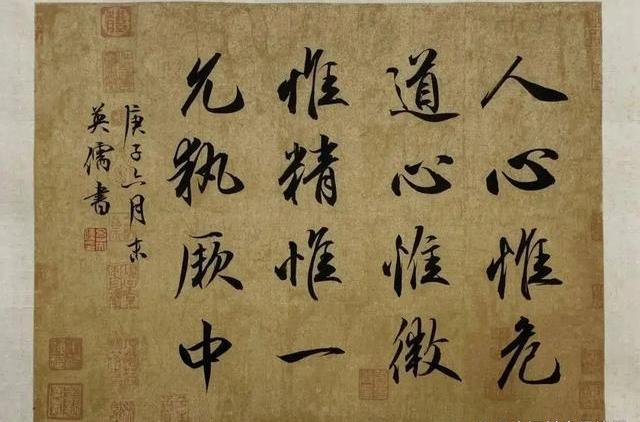 人心惟危
道心惟微
惟精惟一
允執厥中
庚子六月末
英儒書